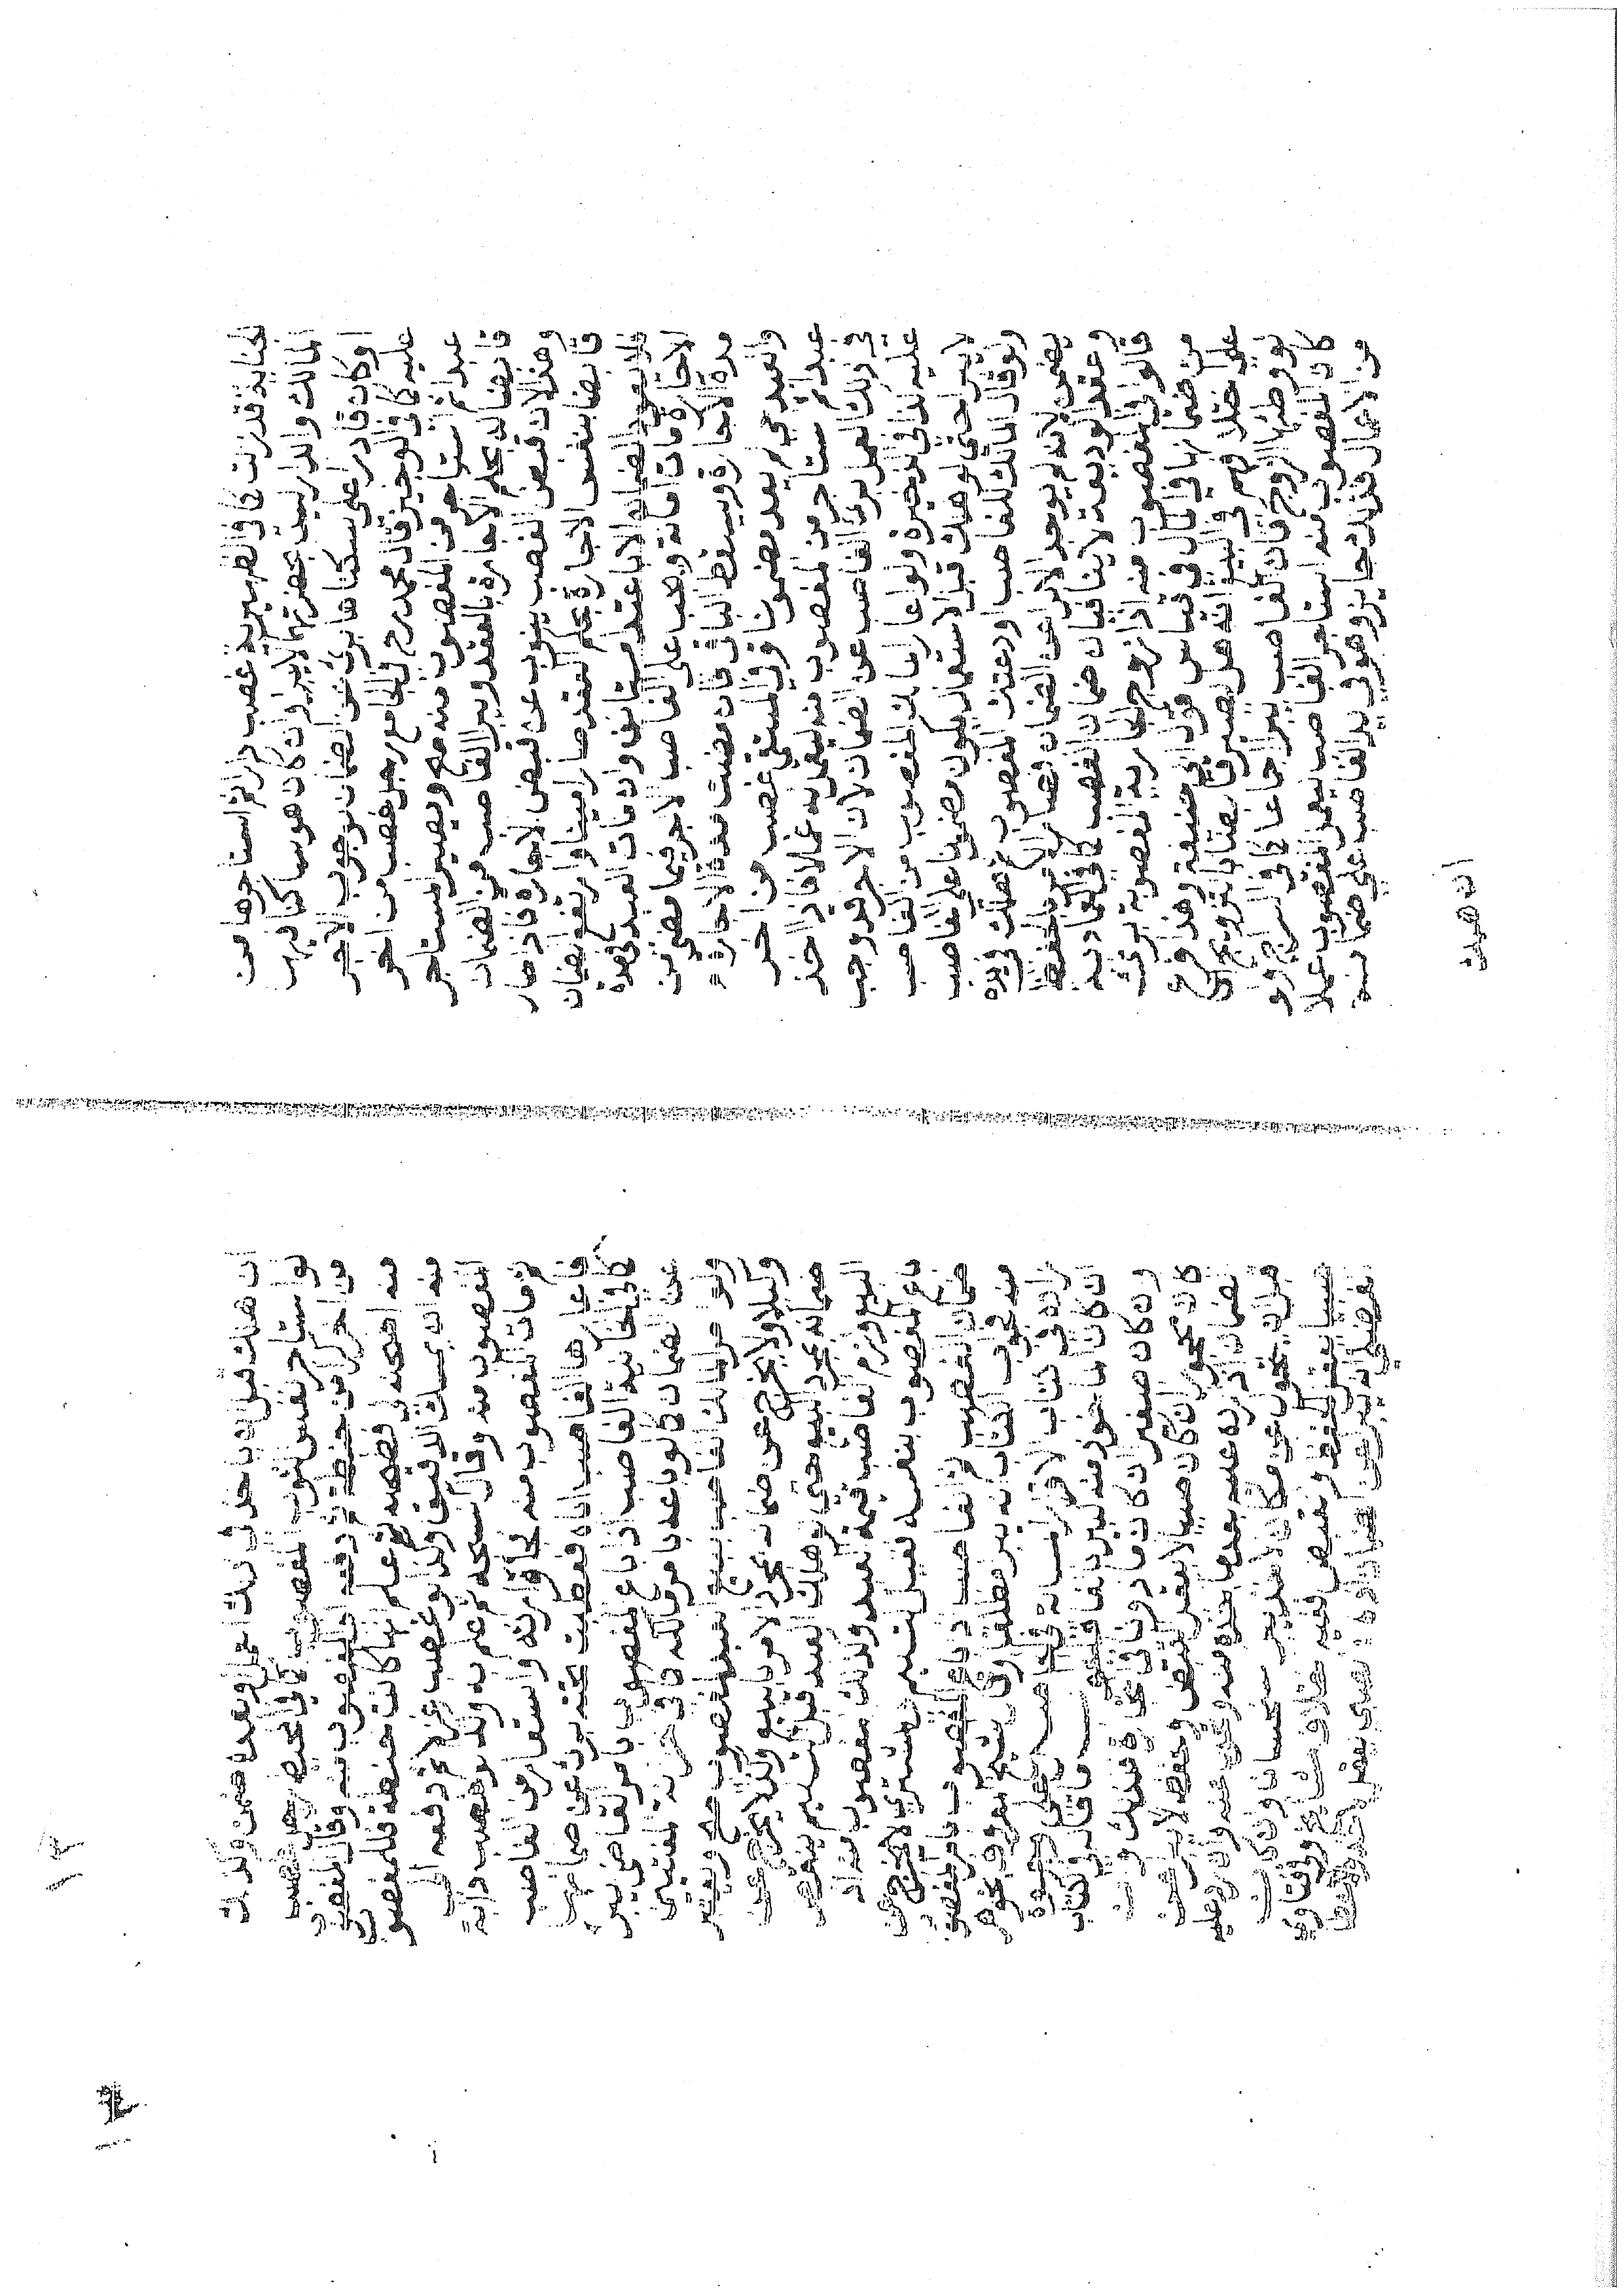 الجناية قدرت كما في الظهيرية غصب دارا ثم استاجرها من
المالك والدار ليست بحضرتهما لا يبرا وان كان هو ساكنا فيها
او كان قادرا على سكناها برئ عن الضمان لوجوب الاجر
عليه كما في الوجيز قال محمد رح في الجامع رجل غصب من اخر
عبدا ثم استاجره من المغصوب منه صح ويصير المستاجر
قابضا له بحكم الاجارة بالعقد ويبرا الغاصب من الضمان
وهذا لان قبض الغصب ينوب عن قبض الاجارة فاذا صار
قابضا بنفس الاجارة بحكم العقد صار امينا وارتفع الضمان
فلا يعود الضمان الا بعقد مستانف وان مات العبد في مدة
الاجارة مات امانة وجب على الغاصب الاجر فيما مضى من
مدة الاجارة ويسقط الباقي فان مضت مدة الاجارة
والعبد حي لم يعد مضمونا وفي المنتقى غصب من اخر
عبدا ثم استاجره من المغصوب منه ليعمل به عملا فاذا اخذ
في ذلك العمل برئ الغاصب عن الضمان لان الاجر قد وجب
عليه كذا في الذخيرة ولو اعار المالك المغصوب من الغاصب
لا يبرا حتى لو هلك قبل الاستعمال يكون مضمونا على الغاصب
ولو قال المالك للغاصب اودعتك المغصوب ثم هلك في يده
يضمن لانه لم يوجد الابراء عن الضمان نصا والامر بالحفظ
وعقد الوديعة لا ينافيان ضمان الغصب كما في العمادية
قالوا في المغصوب منه اذا زوج الجارية المغصوبة برئ
من ضمانها في الحال في قياس قول ابي حنيفة وهذا فرع
على اختلافهم في البيع انه هل يصير قابضا بالتزويج
لو وطئها الزوج فان الغاصب يبرا اجماعا كما في السراج ولو
كان المغصوب منه استاجر الغاصب ليعلم المغصوب عملا
من الاعمال فذلك جائز وهو في يد الغاصب على ضمانه
ان هلك
ان هلك قبل ان ياخذ في ذلك العمل او بعده ضمن وكذلك
لو استاجر لغسل الثوب المغصوب كما في المحيط رجل غصب
من اخر كرا من حنطة ثم دفعه الى المغصوب منه وقال للمغصوب
منه اطحنه لي فطحنه ثم علم انها كانت حنطة فللمغصوب
منه ان يمسك الدقيق وكذا لو غصب غزلا ثم دفعه الى
المغصوب منه وقال انسجه ثم علم به وكذا لو غصب دابة
ثم مات المغصوب منه فجاء وارثه واستعار من الغاصب
فاعارها الغاصب اياه فعطبت تحته برئ عن ضمانها
كما في الخانية الغاصب اذا باع المغصوب بامر القاضي يبرا
عن الضمان كما لو باعه بامر مالكه كما في خزانة المفتيين
ولو امر المالك الغاصب ببيع العبد المغصوب صح ويصير
وكيلا ولا يخرج عن ضمانه بمجرد الامر بالبيع ولا يخرج عن
ضمانه بمجرد البيع حتى لو هلك العبد قبل التسليم ينتقض
البيع ولزم الغاصب قيمة العبد وكذلك المغصوب منه اذا
باع المغصوب بنفسه فقبل تسليم المشتري لا يخرج عن
ضمان الغصب ثم الغاصب اذا باع المغصوب بامر المغصوب
منه بجواب الكتاب انه يبرا مطلقا وقال شيخ المعروف بخواهر
زاده في كتاب الاقرار مسالة الغاصب على وجوه
ان كان الماخوذ منه كبيرا بالغا فالجواب ما قال في الكتاب
وان كان صغيرا ان كان ماذونا في التجارة فكذلك وان
كان محجورا ان كان صبيا لا يعقل القبض والحفظ لا يبرا عن
الضمان اذا رده عليه بعد ما اخذه منه وتحول عنه وان رده عليه
قبل ان يتحول عن مكان الاخذ يبرا استحسانا وان كان
صبيا يعقل الحفظ والقبض ففيه اختلاف المشايخ وفي فتاوى
الفضلي انه يبرا من غير